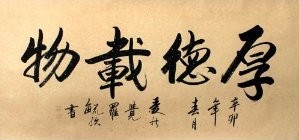 厚德載物
辛卯
年
春月
愛新
覺羅
毓
書